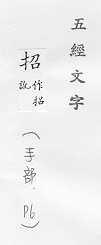 五經文字
招
作㧕
訛
（手部、P6）